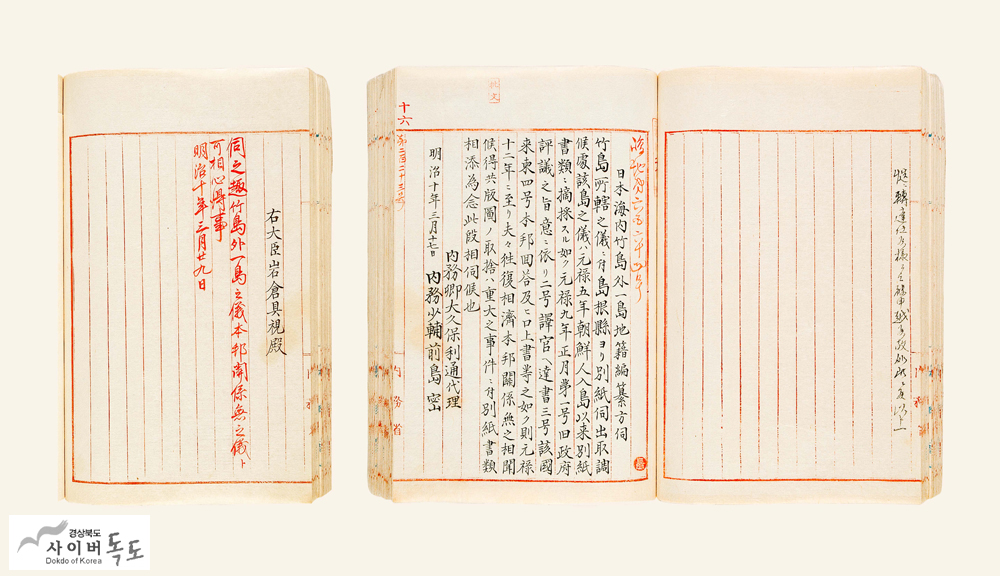 日本海内竹島外一島地籍編纂方伺
竹島所轄之儀ニ付島根縣ヨリ別紙伺出取調
候處該島之儀ハ元禄五年朝鮮人入島以来別紙
書類ニ摘採スル如ク元禄九年正月第一号旧政府
評議之旨意ニ依リ二号譯官ヘ達書三号該國
来柬四号本邦回答及ヒ口上書等之如ク則元禄
十二年ニ至リ夫々往復相濟本邦關係無之相聞
候得共版圖ノ取捨ハ重大之事件ニ付別紙書類
相添為念此段相伺候也
内務卿大久保利通代理
明治十年三月十七日 内務少輔前島密
十六
内務省
右大臣岩倉具視殿
伺之趣竹島外一島之儀本邦関係無之儀ト
可相心得事
明治十年三月廿九日
경상북도
사이버독도
Dokdo of Korea